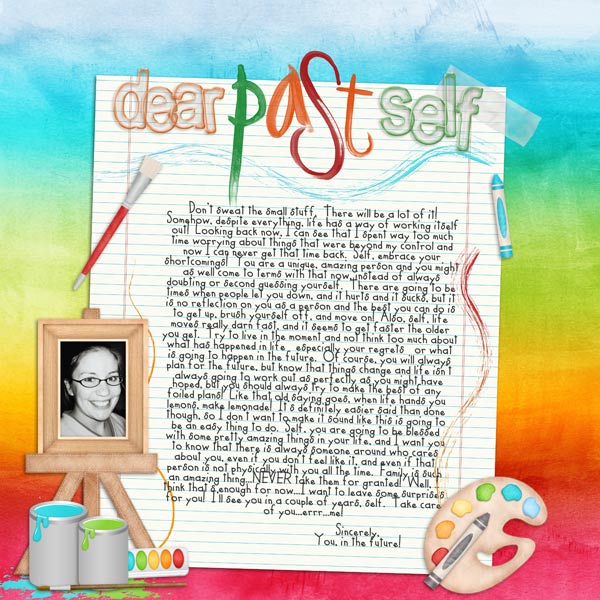 dear past self
Don't sweat the small stuff. There will be a lot of it!
Somehow, despite everything, life has a way of working itself
out! Looking back now, I can see that I spent way too much
time worrying about things that were beyond my control and
now I can never get that time back. Self, embrace your
shortcomings! You are a unique, amazing person and you might
as well come to terms with that now...instead of always
doubting or second guessing yourself. There are going to be
times when people let you down, and it hurts and it sucks, but it
is no reflection on you as a person and the best you can do is
to get up, brush yourself off, and move on! Also, self, life
moves really darn fast, and it seems to get faster the older
you get. Try to live in the moment and not think too much about
what has happened in life , especially your regrets or what
is going to happen in the future. Of course, you will always
plan for the future, but know that things change and life isn't
always going to work out as perfectly as you might have
hoped, but you should always try to make the best of any
foiled plans! Like that old saying goes, when life hands you
lemons, make lemonade! It's definitely easier said than done
though, so I don't want to make it sound like this is going to
be an easy thing to do. Self, you are going to be blessed
with some pretty amazing things in your life, and I want you
to know that there is always someone around who cares
about you, even if you don't feel like it, and even if that
person is not physically with you all the time. Family is such
an amazing thing...NEVER take them for granted! Well, I
think that's enough for now...I want to leave some surprises
for you! I'll see you in a couple of years, self. Take care
of you...errr...me!
Sincerely,
You, in the future!